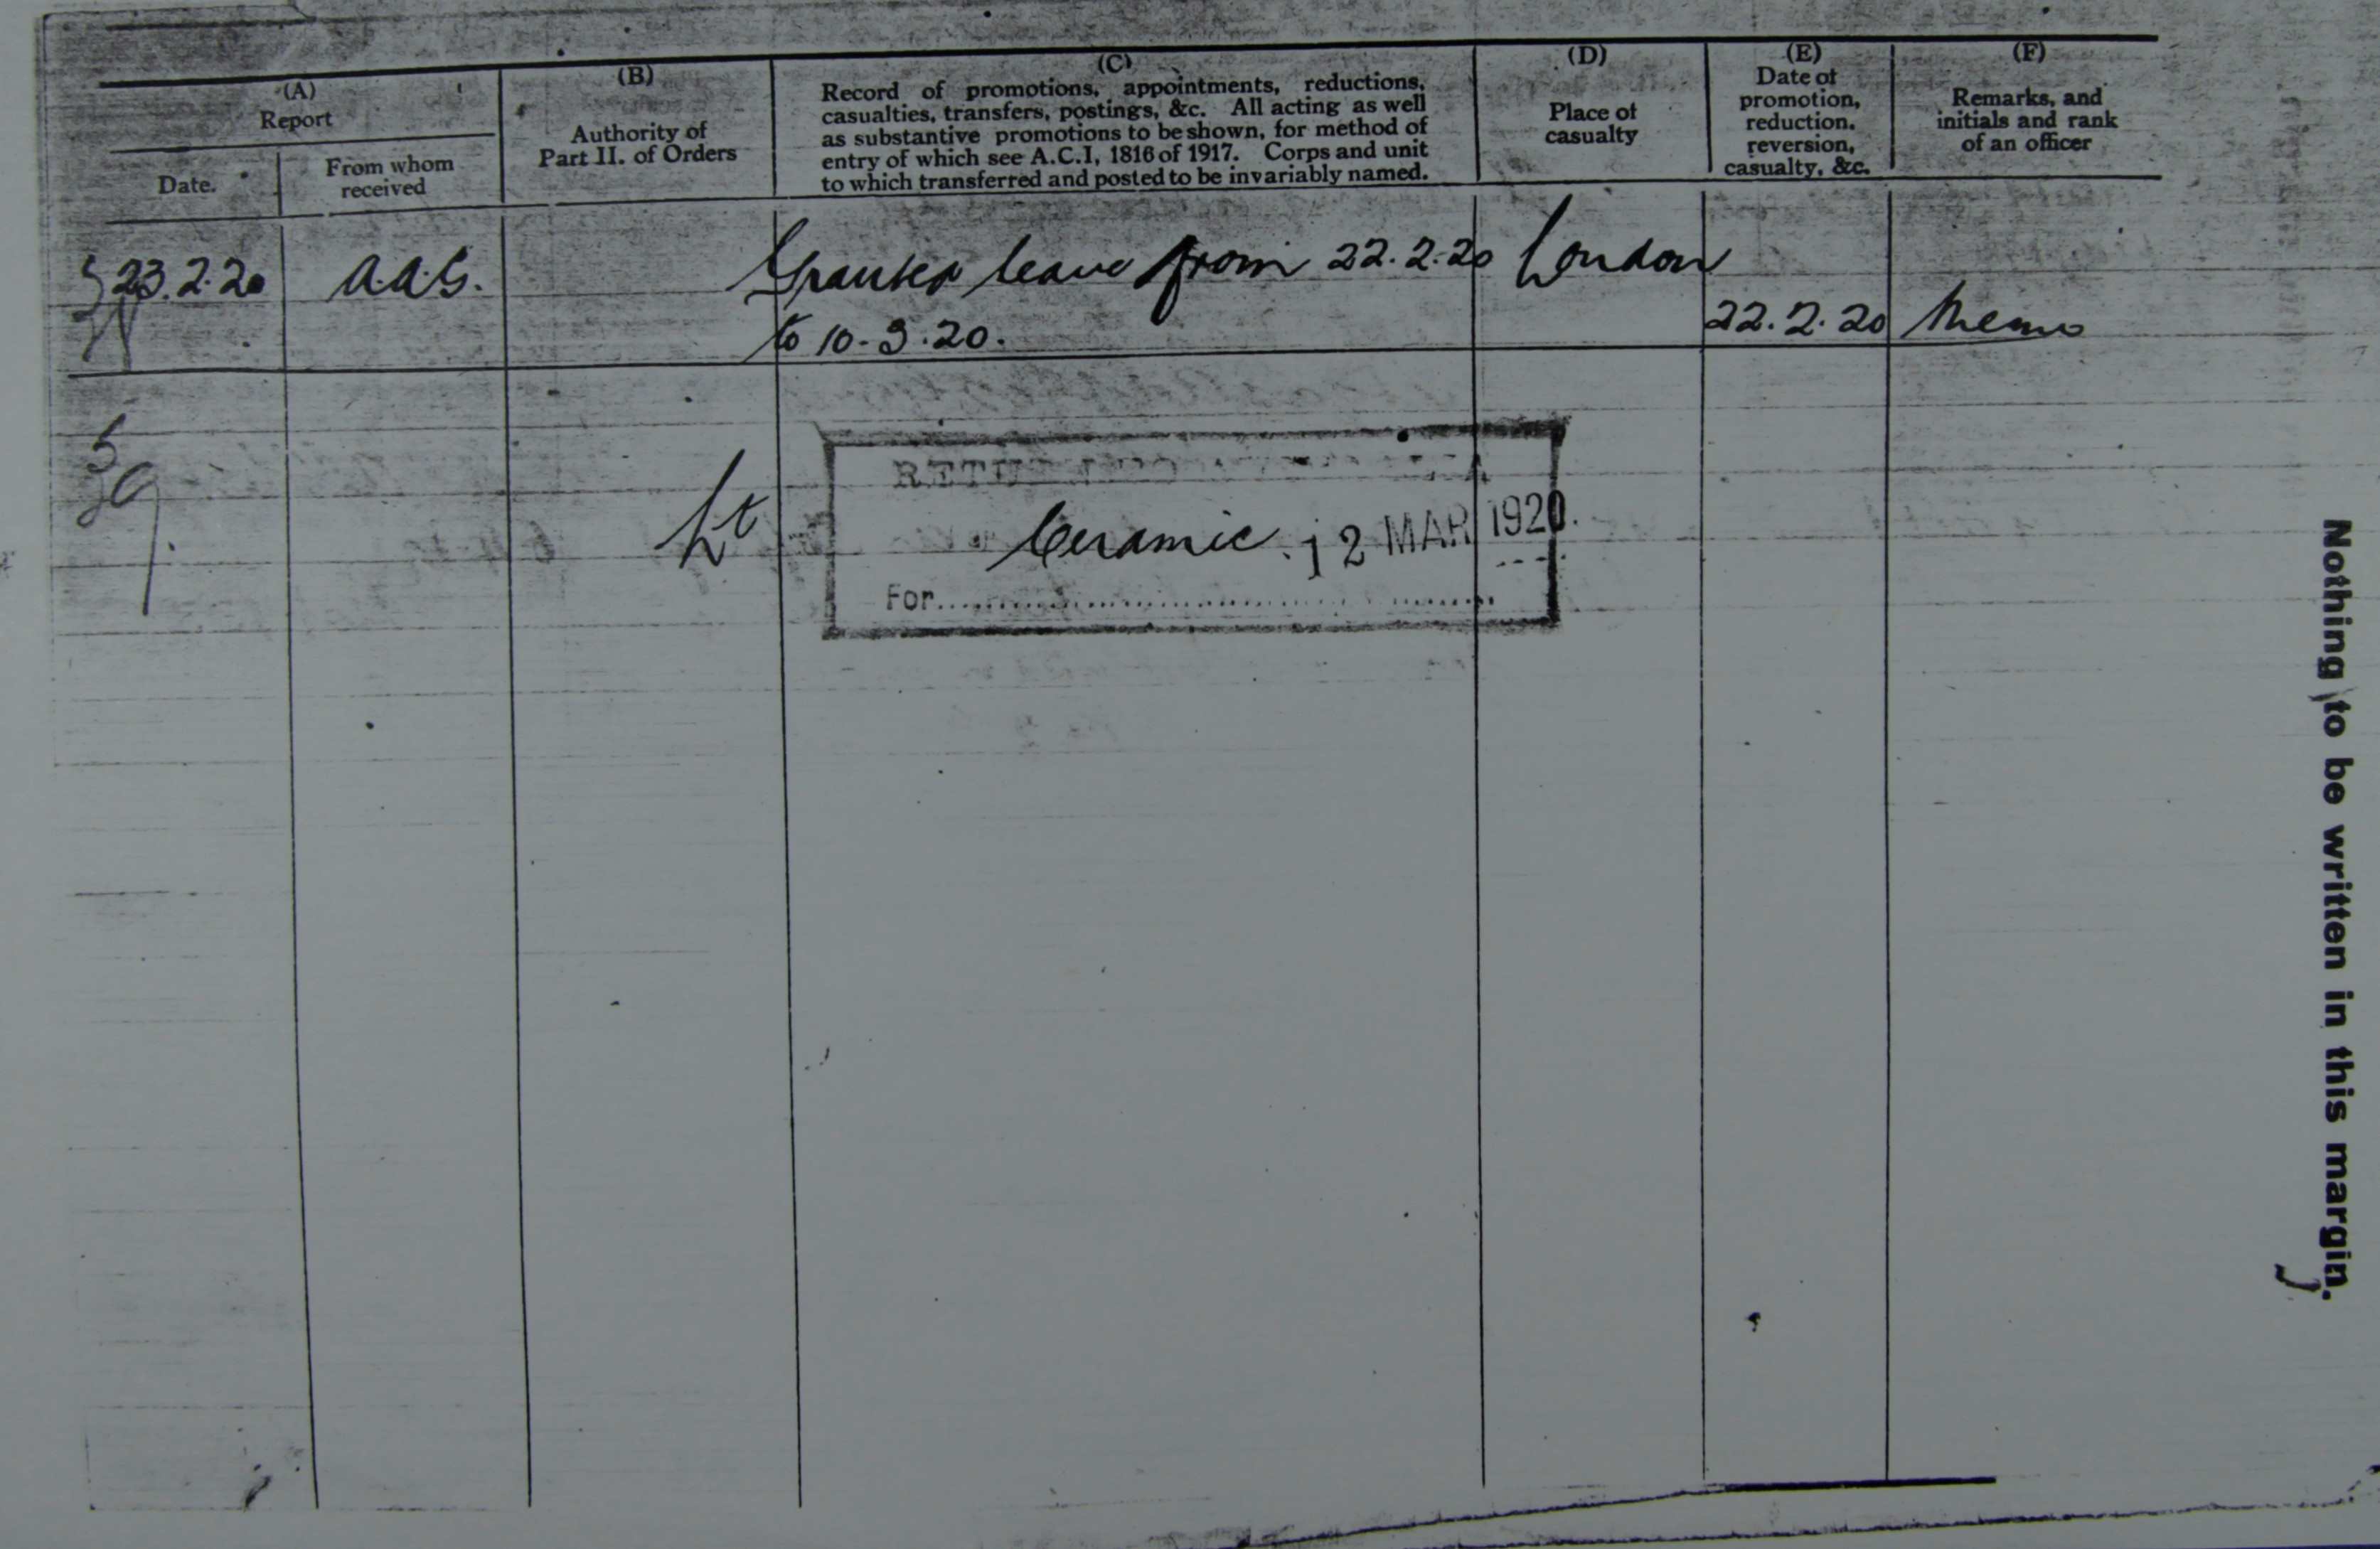 (A)
Report
Date.
From whom
received
(B)
Authority of
Part II. of Orders
(C)
Record of promotions, appointments, reductions,
casualties, transfers, postings, &c. All acting as well
as substantive promotions to be shown, for method of
entry of which see A.C.I, 1816 of 1917. Corps and unit
to which transferred and posted to be invariably named.
(D)
Place of
casualty
(E)
Date of
promotion,
reduction,
reversion,
casualty, &c.
(F)
Remarks, and
initials and rank
of an officer
23.2.20 A.A.G. Granted leave from 22.2.20 London
to 10.3.20. 22.2.20 Memo
Lt
Ceramic. 12 MAR 1920.
For
Nothing to be written in this margin.